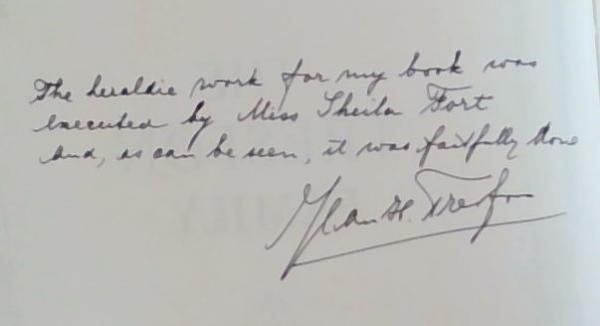 The heraldic work for my book was
executed by Miss Sheila Fort
and, as can be seen, it was faithfully done